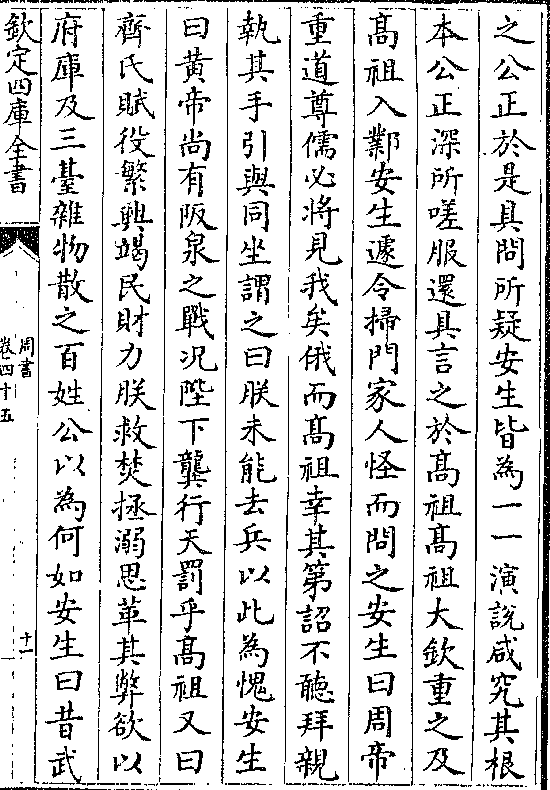 之公正於是具問所疑安生皆為一一演說咸究其根
本公正深所嗟服還具言之於髙祖髙祖大欽重之及
髙祖入鄴安生遽令掃門家人怪而問之安生曰周帝
重道尊儒必將見我矣俄而髙祖幸其第詔不聽拜親
執其手引與同坐謂之曰朕未能去兵以此為愧安生
曰黄帝尚有阪泉之戰况陛下龔行天罰乎髙祖又曰
齊氏賦役繁興竭民財力朕救焚拯溺思革其弊欲以
府庫及三臺雜物散之百姓公以為何如安生曰昔武
欽定四庫全書
周書
卷四十五
十一